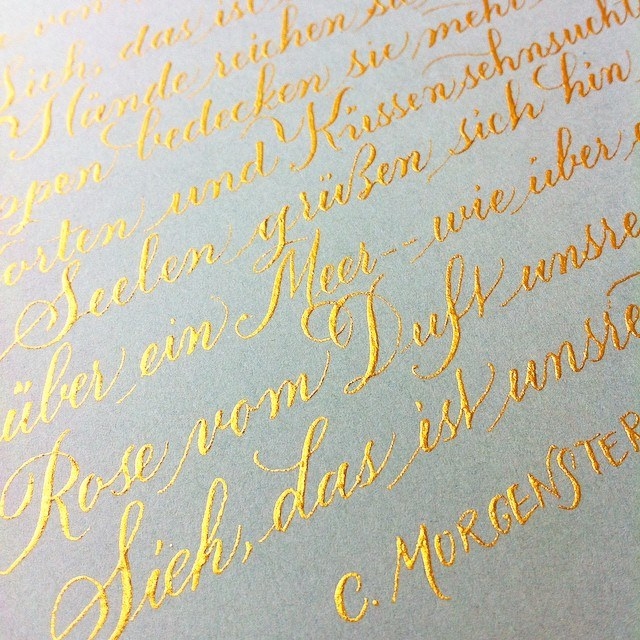 Sieh, das ist
Hände reichen sie
ppen bedecken sie mehr
orten und Küssen sehnsucht
Seelen grüßen sich hin
über ein Meer-- wie über
Rose vom Duft unsre
Sieh, das ist unsre
C. MORGENSTER